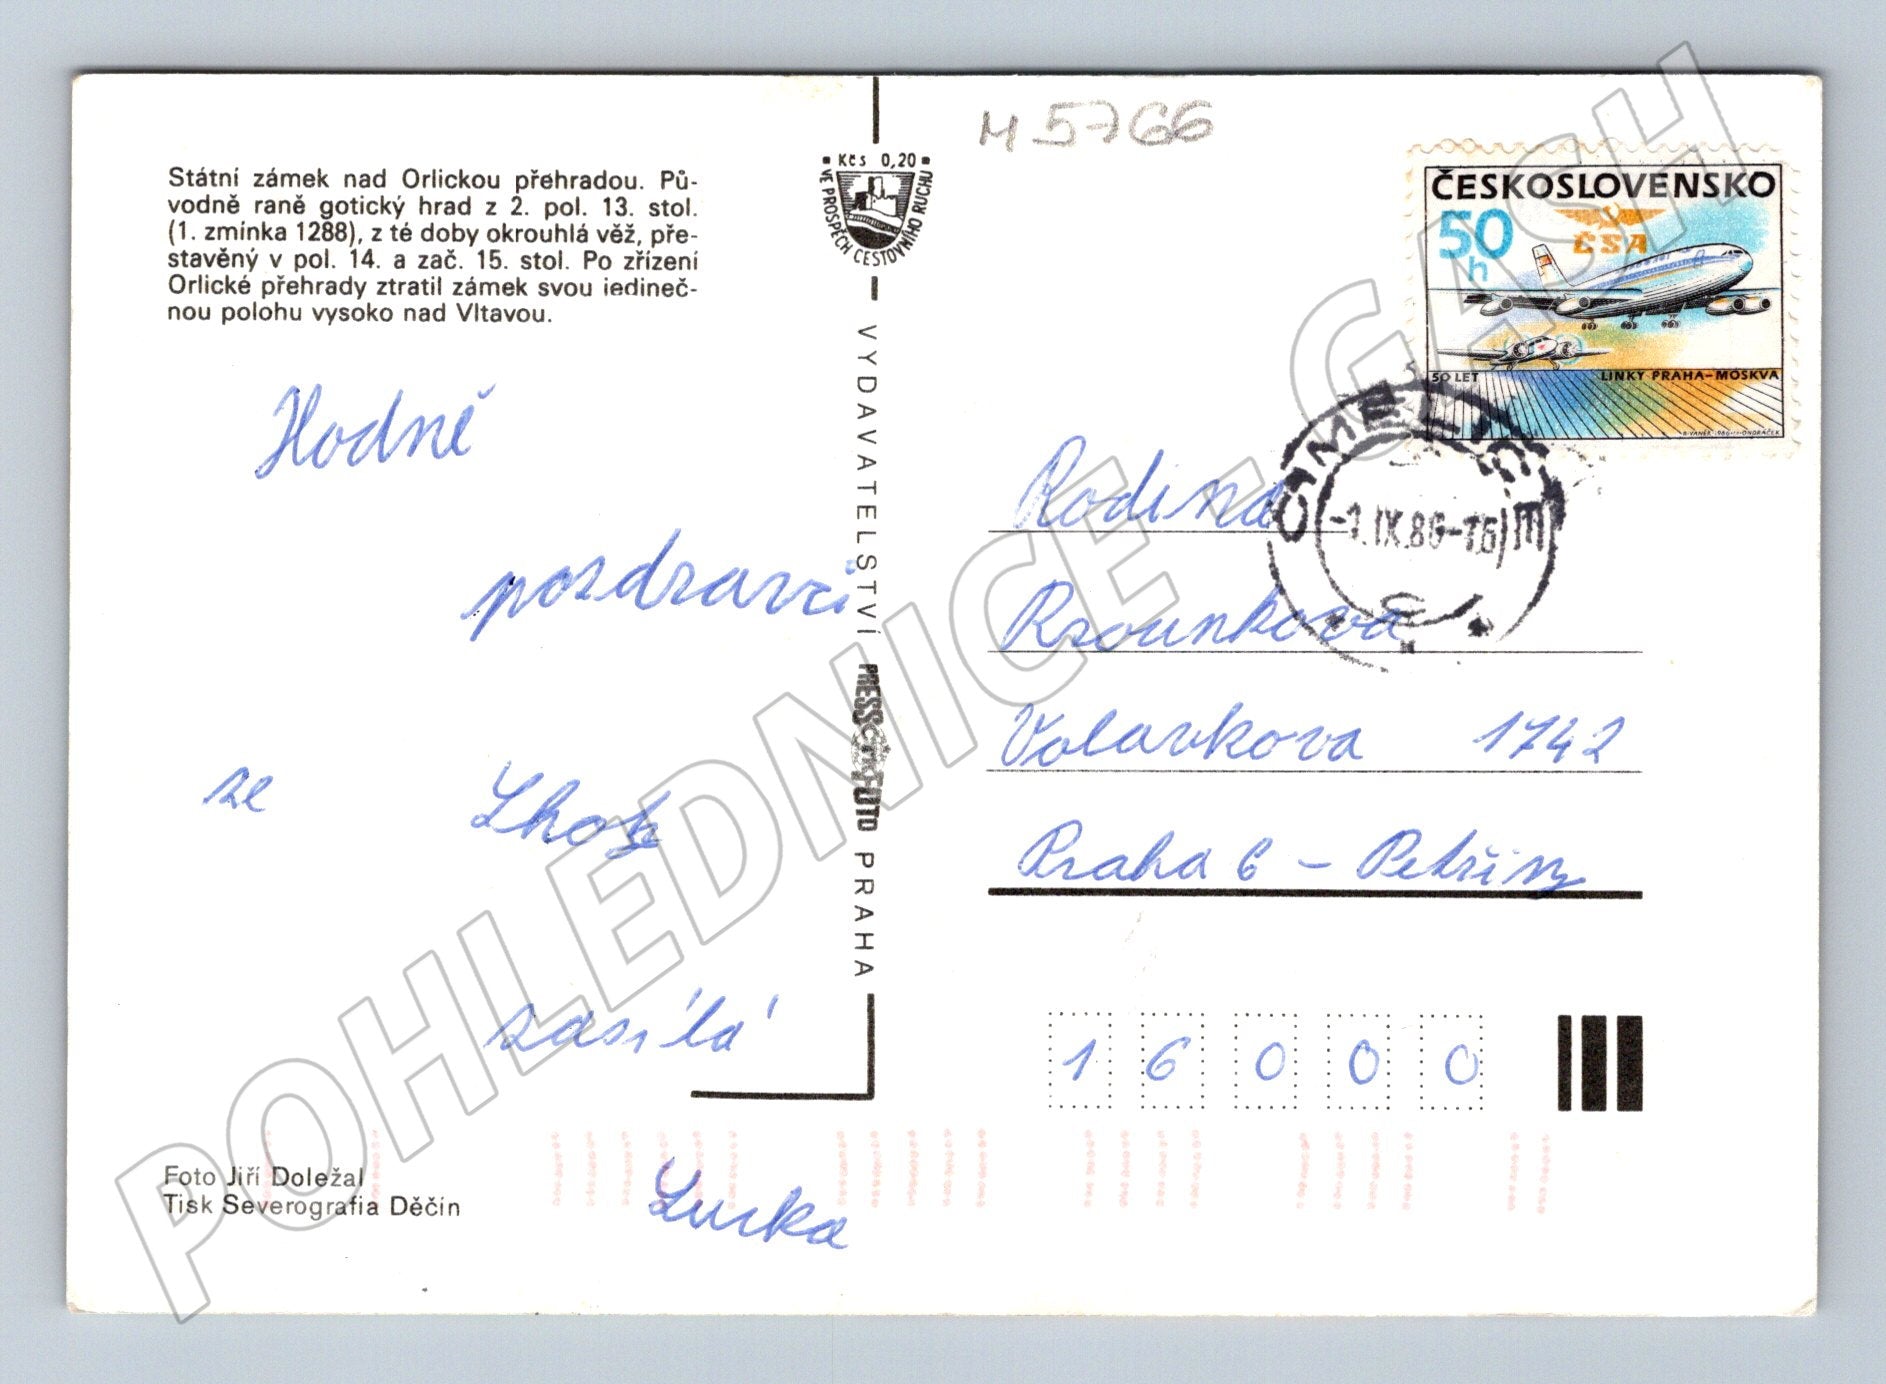 M 5766
Státní zámek nad Orlickou přehradou. Pů-
vodně raně gotický hrad z 2. pol. 13. stol.
(1. zmínka 1288), z té doby okrouhlá věž, pře-
stavěný v pol. 14. a zač. 15. stol. Po zřízení
Orlické přehrady ztratil zámek svou jedineč-
nou polohu vysoko nad Vltavou.
Kčs 0,20
VE PROSPĚCH CESTOVNÍHO RUCHU
VYDAVATELSTVÍ PRESSFOTO PRAHA
ČESKOSLOVENSKO
50 h
ČSA
50 LET LINKY PRAHA-MOSKVA
-1.IX.86-16
Hodně
pozdravů
ze Lhoty
zasílá
Lucka
Rodina
Rsounkova
Volavkova 1742
Praha 6 - Petřiny
16000
Foto Jiří Doležal
Tisk Severografia Děčín
POHLEDNICE - GASH